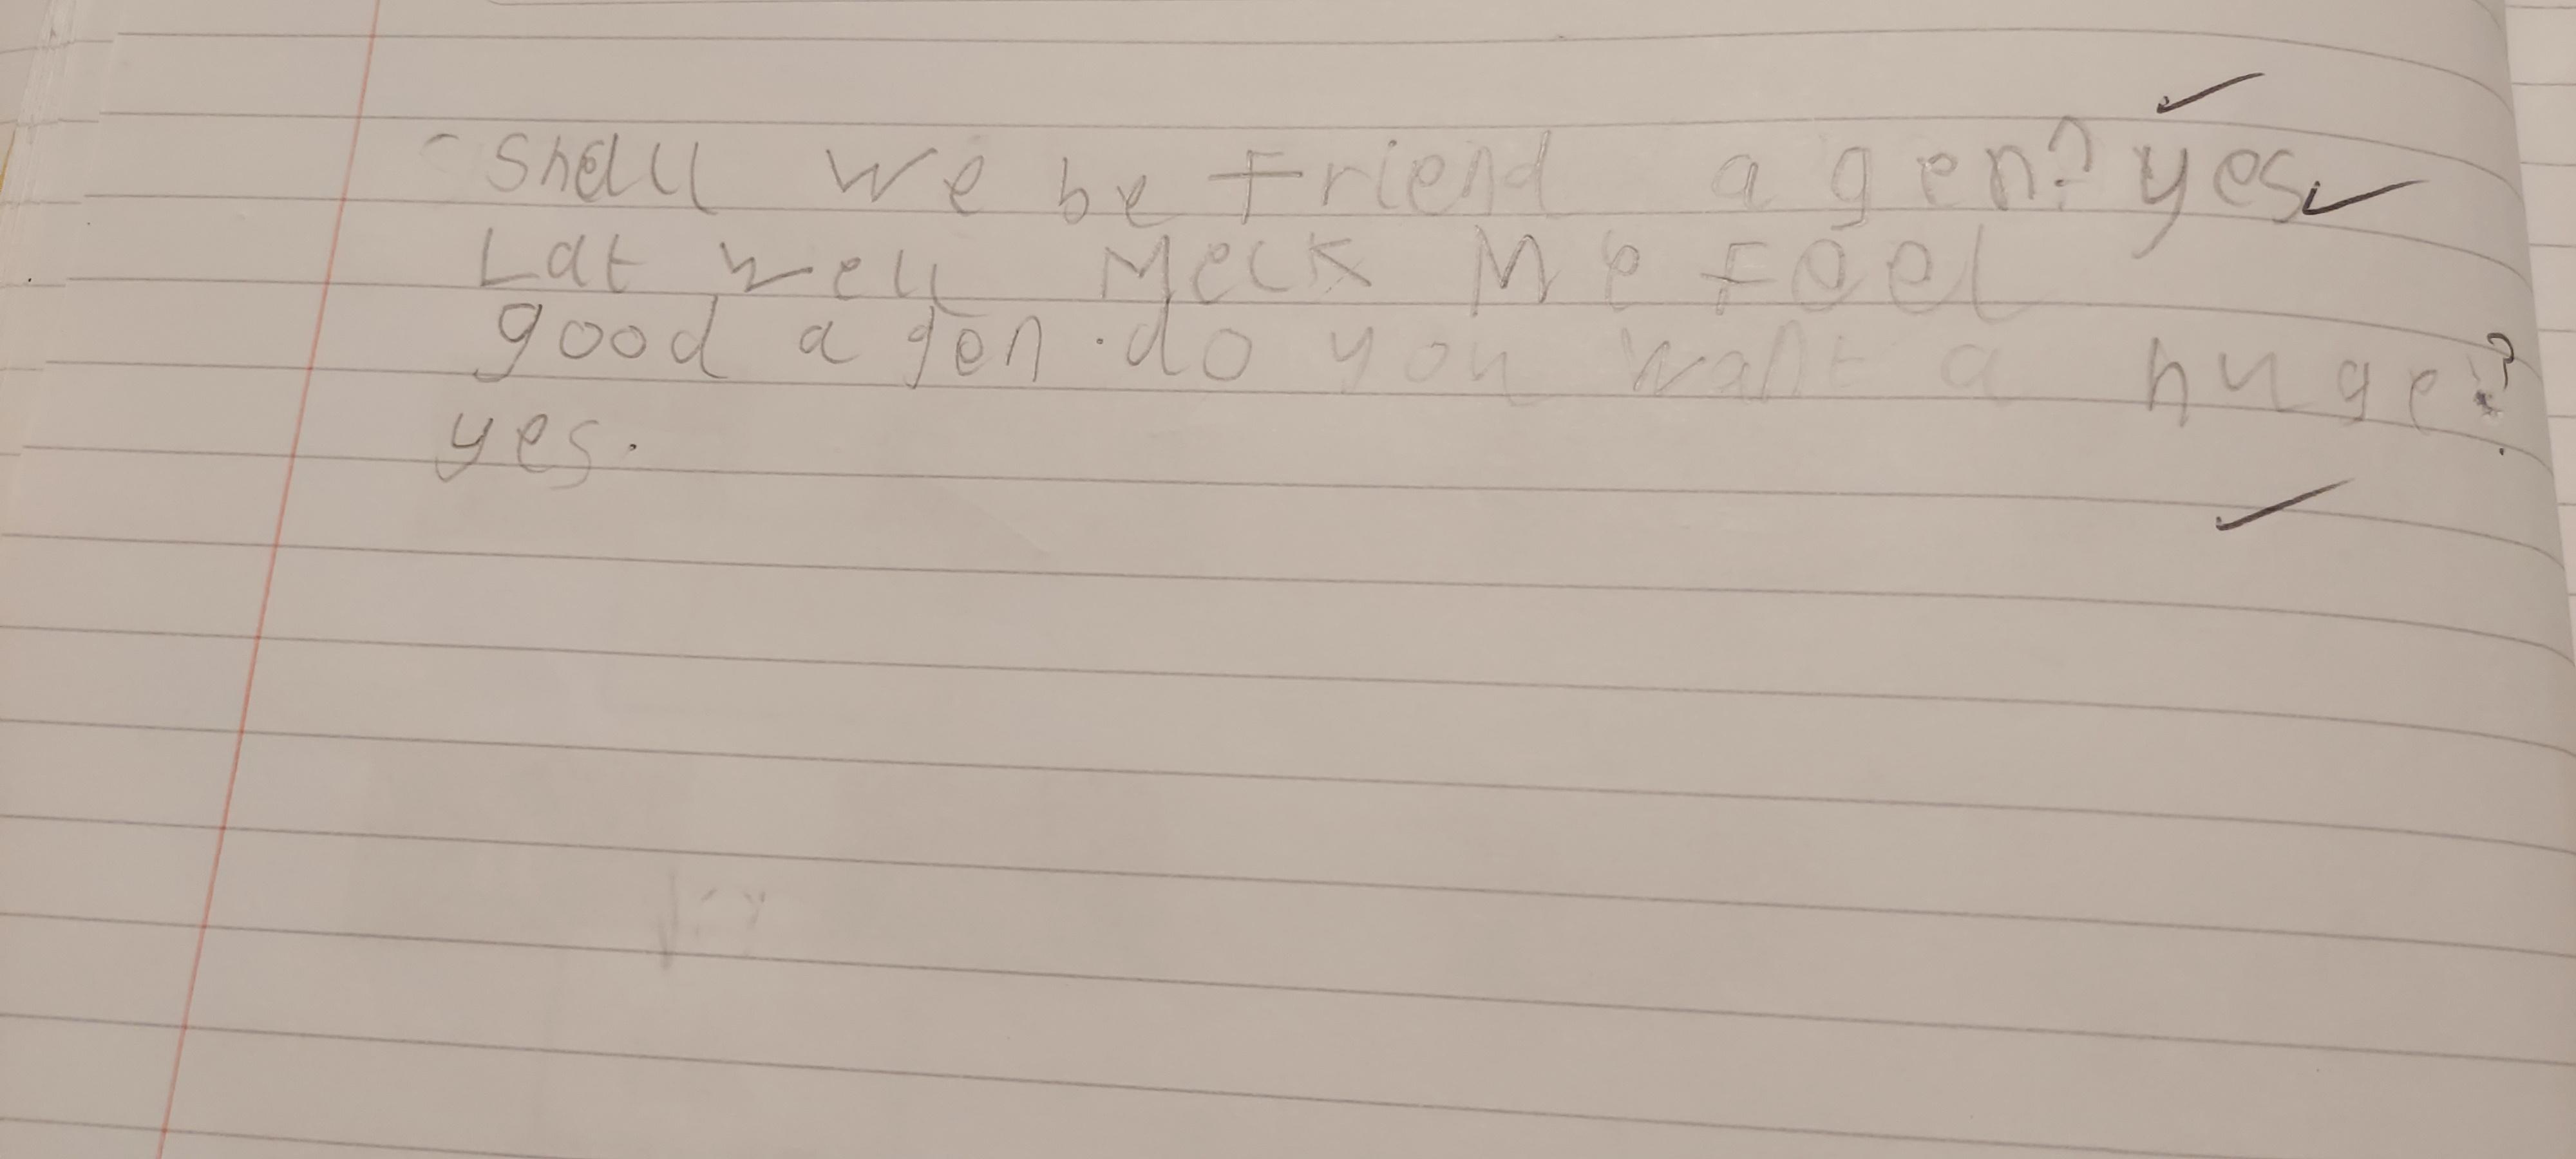 Shall we be friend a gen? yes
Lat well Meck Me feel
good a gen. do you want a huge?
yes.